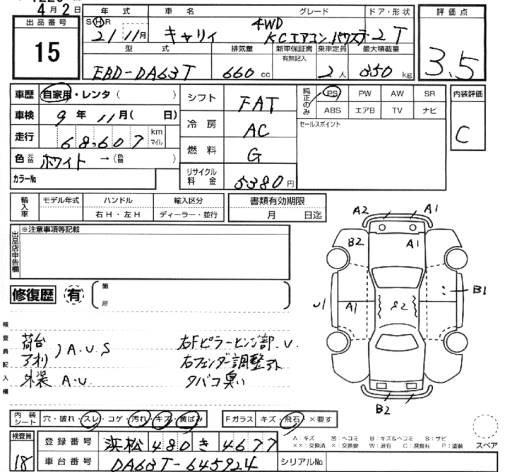 4月2日
出品番号
15
年式 車名 グレード ドア・形状
SHR 21/11月 キャリィ 4WD KCエアコン パワステ-2T
型式 排気量 新車保証書 有無記入 乗車定員 最大積載量
EBD-DA63T 660cc 2人 350kg
評価点
3.5
車歴 自家用・レンタ( )
車検 9年11月( 日)
走行 68,607 km マイル
色 元色 ホワイト→(色替 )
カラーNo
シフト FAT
冷房 AC
燃料 G
リサイクル料金 5380円
純正のみ PS PW AW SR
ABS エアB TV ナビ
セールスポイント
内装評価
C
輸入車 モデル年式 ハンドル 輸入区分
右H・左H ディーラー・並行
書類有効期限
月 日迄
出品店申告欄
※注意事項等記載
修復歴 有 箇所
検査員記入欄
荷台
アオリ ) A.U.S
外装 A.U
右Fピラーヒンジ部.U
右フェンダー調整外
タバコ臭い
A2 A1
B2 A1
U1 A1 S2 B1
B2
B2
内装シート 穴・破れ・スレ・コゲ・汚れ・キズ・黄ばみ
Fガラス キズ・飛石×要す
A:キズ 凹:ヘコミ B:キズ&ヘコミ S:サビ
スペア
検査員
18
登録番号 浜松480き4677
車台番号 DA63T-645924
シリアルNo